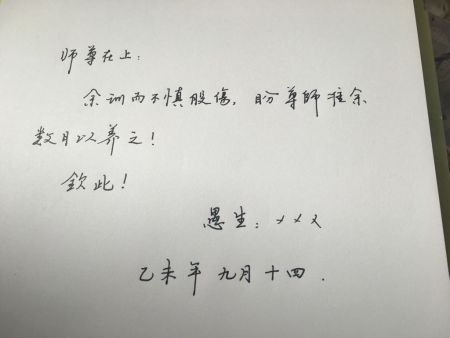 师尊在上：
余训而不慎股傷，盼尊師准余
数月以养之！
欽此！
愚生：×××
乙未年九月十四．